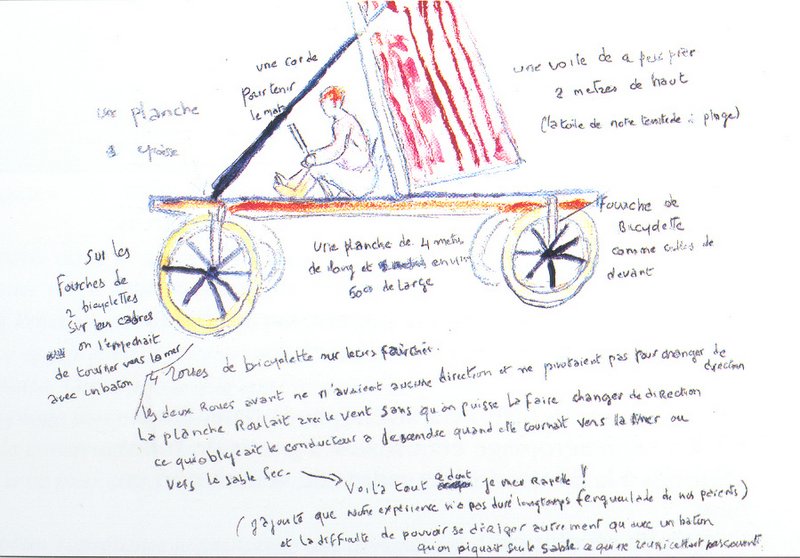 une corde
pour tenir
le mat
une voile de a peu près
2 metres de haut
(la toile de notre tente de plage)
une planche
epaisse
Fourche de
Bicyclette
comme celles de
devant
une planche de 4 metres
de long et environ
50 de large
Sur les
Fouches de
2 bicyclettes
Sur leur cadres
on l'empechait
de tourner vers la mer
avec un baton
4 roues de bicyclette sur leurs fourches.
les deux Roues avant ne n'avaient aucune direction et ne pivotaient pas pour changer de
direction
La planche Roulait avec le vent sans qu'on puisse la faire changer de direction
ce qui obligeait le conducteur a descendre quand elle tournait vers la mer ou
vers le sable sec.
Voilà tout ce dont je me Rapelle !
(J'ajoute que notre expérience n'a pas duré longtemps l'engueulade de nos parents)
et la difficulte de pouvoir se diriger autrement qu avec un baton
qu'on piquait sur le sable. ce qui ne reussicettait pas souvent.